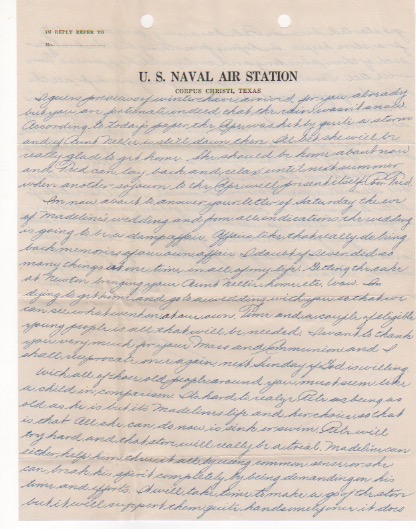 IN REPLY REFER TO
No.
U. S. NAVAL AIR STATION
CORPUS CHRISTI, TEXAS
I guess previews of winter have arrived for you already
but you are fortunate indeed that the rain wasn't snow.
According to today's paper, the Cape was hit by quite a storm
and if Aunt Nellie is still down there I'll bet she will be
really glad to get home. She should be home about now
and Fred can lay back and relax until next summer
when another sojourn to the Cape will present itself
I'm now about to answer your letter of Saturday the eve
of Madeline's wedding and from all indication the wedding
is going to be a damp affair. Affairs like that really do bring
back memories of our own affair. I doubt if I ever did so
many things at one time in all of my life. Getting the cake
at Newton bringing your Aunt Nellie home, etc. Wow. I'm
dying to get home and go to a wedding with you so that we
can see what went on at our own. Time and a couple of eligible
young people is all that will be needed. I want to thank
you very much for your Mass and Communion and I
shall reciprocate once again next Sunday if God is willing.
With all of those old people around you must seem like
a child in comparison. It's hard to realize Pete as being as
old as he is but its Madeline's life and her choice so that
is that. All she can do now is sink or swim. Pete will
try hard and that store will really be a trial. Madeline can
either help him through it by using common sense or she
can break his spirit completely by being demanding on his
time and efforts. It will take time to make a go of the store
but it will support them quite handsomely once it does